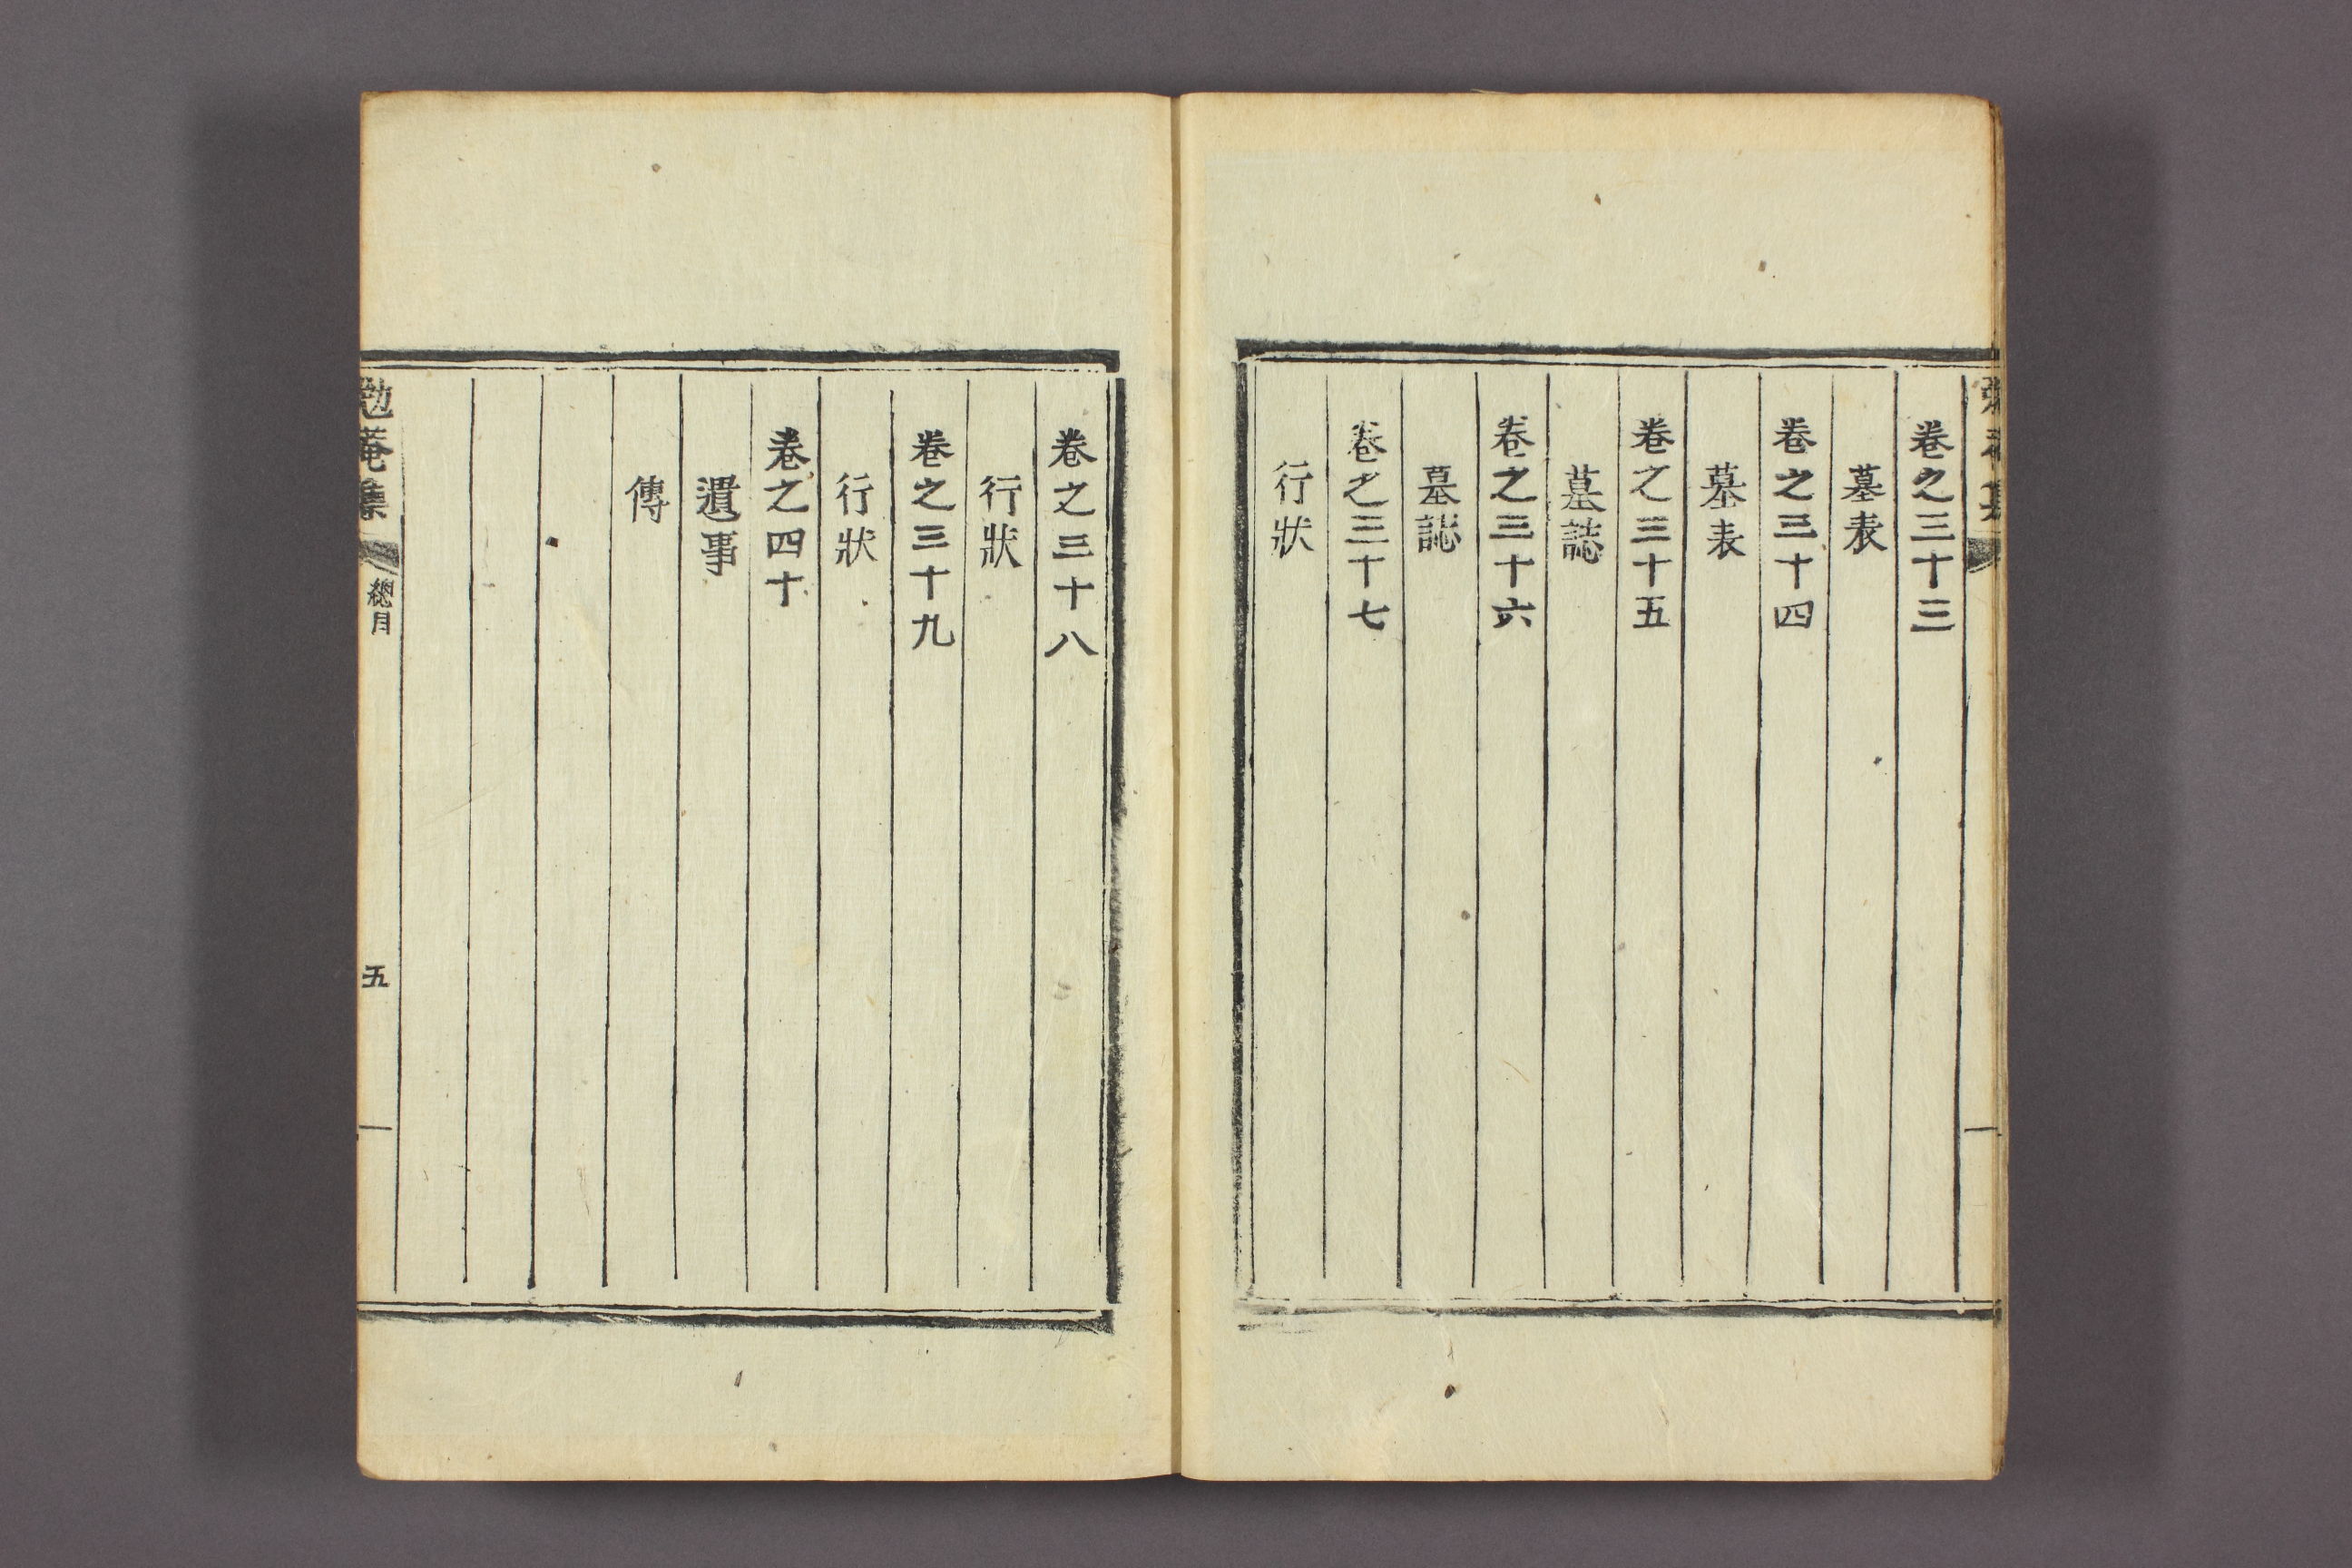 卷之三十三
墓表
卷之三十四
墓表
卷之三十五
墓誌
卷之三十六
墓誌
卷之三十七
行狀
卷之三十八
行狀
卷之三十九
行狀
卷之四十
遺事
傳
勉菴集
總目
五